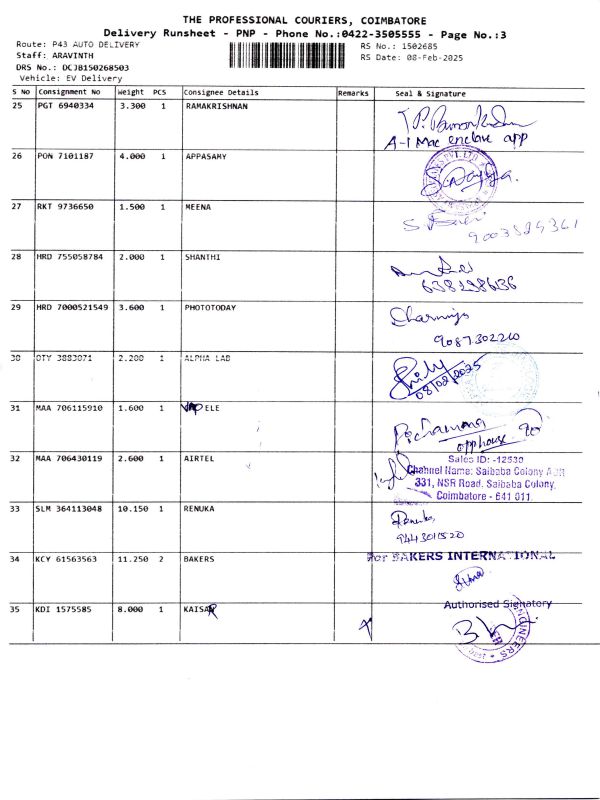 THE PROFESSIONAL COURIERS, COIMBATORE
Delivery Runsheet - PNP - Phone No.:0422-3505555 - Page No.:3
Route: P43 AUTO DELIVERY
Staff: ARAVINTH
DRS No.: DCJB150268503
Vehicle: EV Delivery
RS No.: 1502685
RS Date: 08-Feb-2025
S No Consignment No Weight PCS Consignee Details Remarks Seal & Signature
25 PGT 6940334 3.300 1 RAMAKRISHNAN
A-1 Mac enclave app
26 PON 7101187 4.000 1 APPASAMY
27 RKT 9736650 1.500 1 MEENA
28 HRD 755058784 2.000 1 SHANTHI
638298636
29 HRD 7000521549 3.600 1 PHOTOTODAY
9087302260
30 OTY 3883071 2.200 1 ALPHA LAB
08/02/2025
31 MAA 706115910 1.600 1 ELE
app house
32 MAA 706430119 2.600 1 AIRTEL
Sales ID: -12530
Channel Name: Saibaba Colony
331, NSR Road, Saibaba Colony,
Coimbatore - 641 011.
33 SLM 364113048 10.150 1 RENUKA
Renuka
9443011520
34 KCY 61563563 11.250 2 BAKERS
For BAKERS INTERNATIONAL
Authorised Signatory
35 KDI 1575585 8.000 1 KAISAR
ENGINEERS